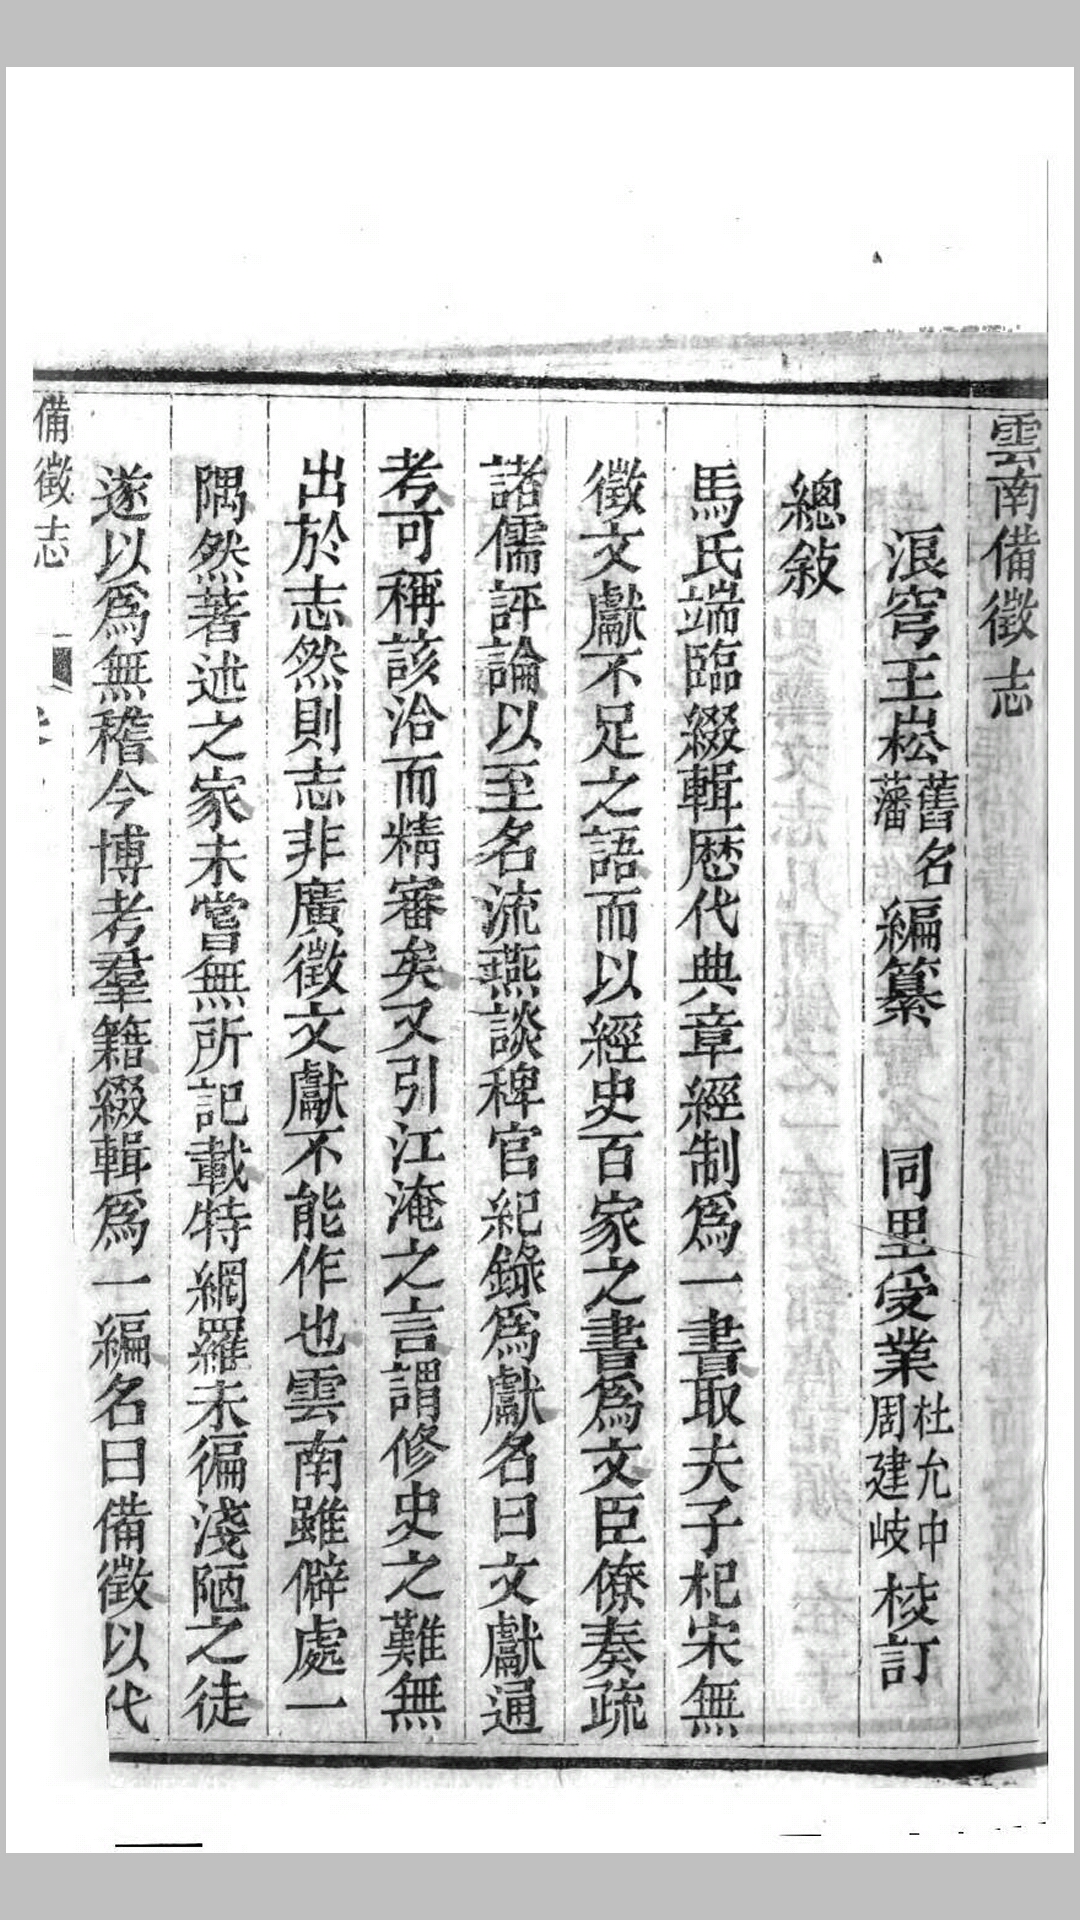 雲南備徵志
浪穹王崧舊名藩編纂 同里受業杜允中周建岐校訂
總敘
馬氏端臨綴輯歷代典章經制爲一書取夫子杞宋無
徵文獻不足之語而以經史百家之書爲文臣僚奏疏
諸儒評論以至名流燕談稗官紀錄爲獻名曰文獻通
考可稱該洽而精審矣又引江淹之言謂修史之難無
出於志然則志非廣徵文獻不能作也雲南雖僻處一
隅然著述之家未嘗無所記載特網羅未徧淺陋之徒
遂以爲無稽今博考羣籍綴輯爲一編名曰備徵以代
備徵志